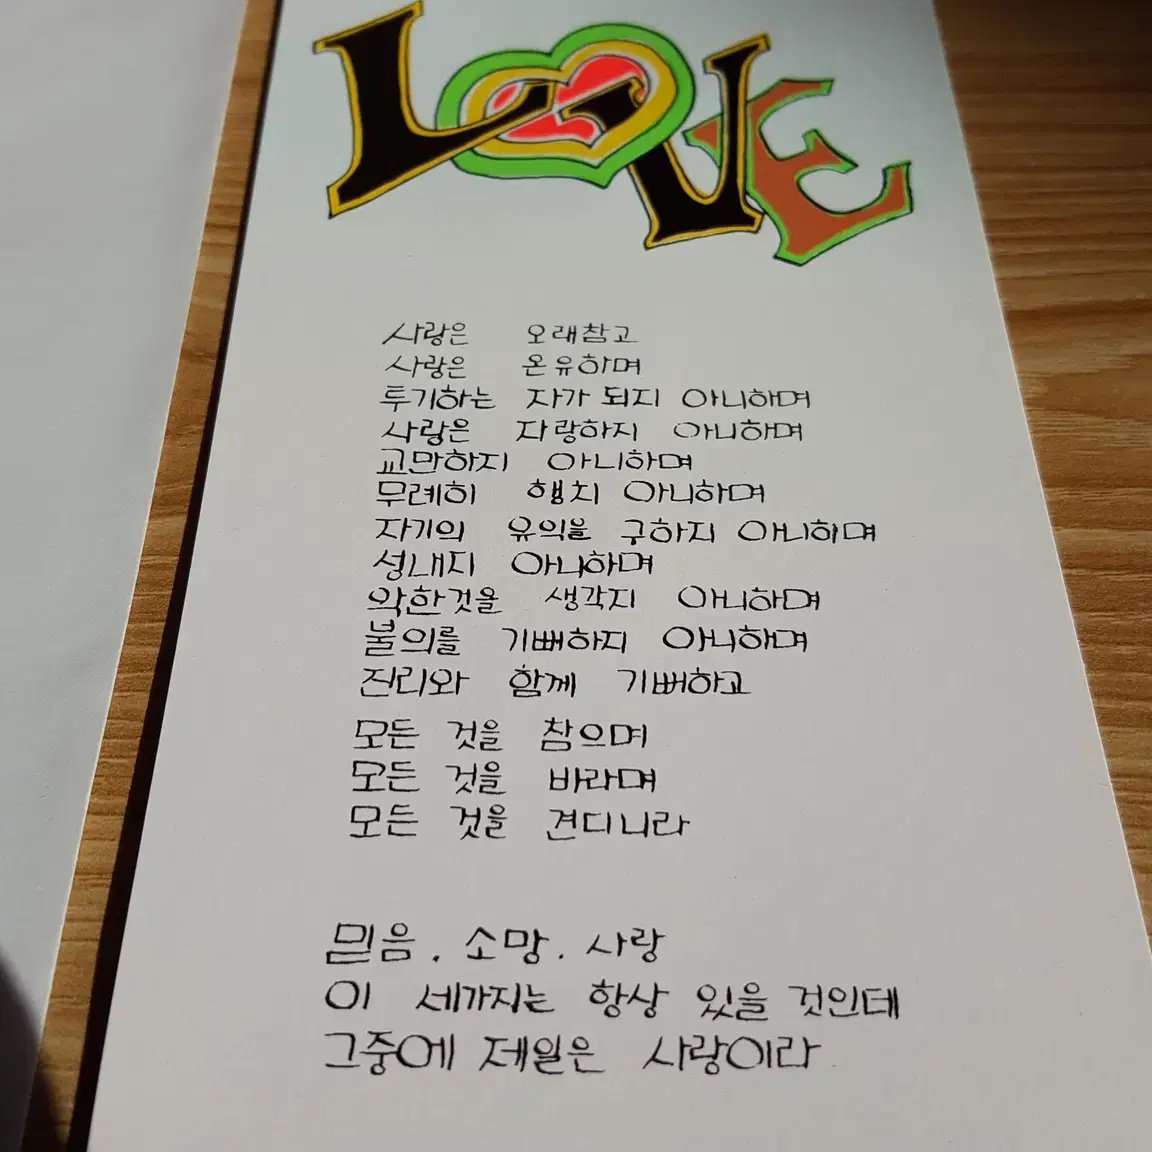 LOVE
사랑은 오래참고
사랑은 온유하며
투기하는 자가 되지 아니하며
사랑은 자랑하지 아니하며
교만하지 아니하며
무례히 행치 아니하며
자기의 유익을 구하지 아니하며
성내지 아니하며
악한것을 생각지 아니하며
불의를 기뻐하지 아니하며
진리와 함께 기뻐하고
모든 것을 참으며
모든 것을 바라며
모든 것을 견디니라
믿음. 소망. 사랑
이 세가지는 항상 있을 것인데
그중에 제일은 사랑이라